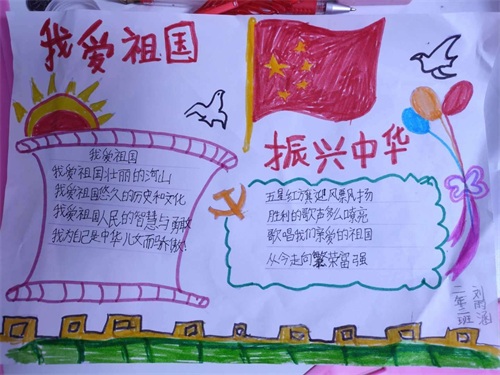 我爱祖国
振兴中华
我爱祖国
我爱祖国壮丽的河山
我爱祖国悠久的历史和文化
我爱祖国人民的智慧与勇敢
我为自己是中华儿女而骄傲!
五星红旗迎风飘扬
胜利的歌声多么嘹亮
歌唱我们亲爱的祖国
从今走向繁荣富强
二年一班